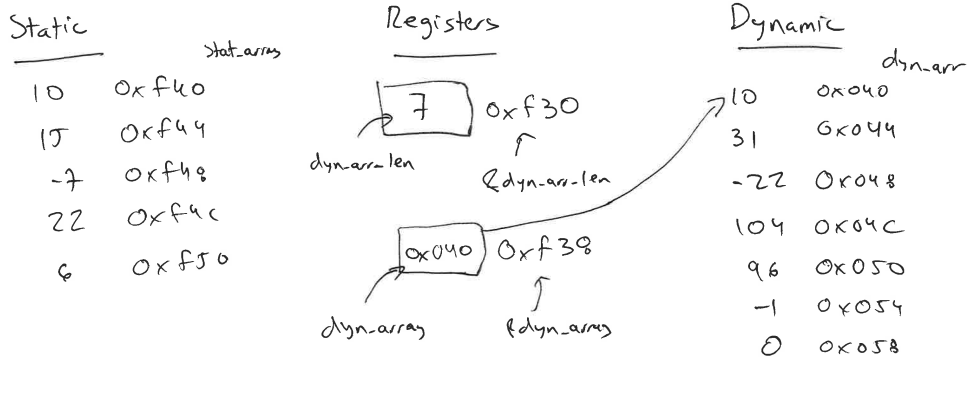 Static
stat_array
10 0xf40
15 0xf44
-7 0xf48
22 0xf4c
6 0xf50
Registers
7 0xf30
dyn_arr_len
&dyn_arr_len
0x040 0xf38
dyn_array
&dyn_array
Dynamic
dyn_arr
10 0x040
31 0x044
-22 0x048
104 0x04C
96 0x050
-1 0x054
0 0x058